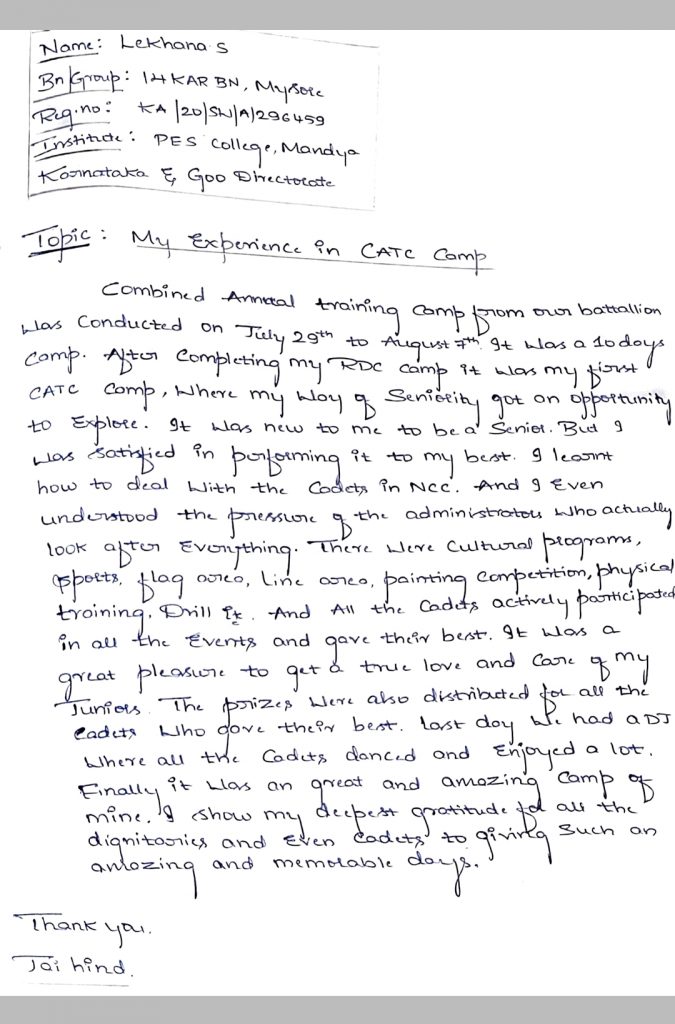 Name: Lekhana S
Bn/Group: 14 KAR BN, Mysore
Reg.no: KA/20/SW/A/296459
Institute: PES College, Mandya
Karnataka & Goo Directorate
Topic: My Experience in CATC Camp
Combined Annual training Camp from our battallion
was Conducted on July 29th to August 7th. It was a 10 days
Camp. After Completing my RDC camp it was my first
CATC Camp, where my way of Seniority got an opportunity
to Explore. It was new to me to be a Senior. But I
was satisfied in performing it to my best. I learnt
how to deal with the Cadets in NCC. And I Even
understood the pressure of the administrators who actually
look after Everything. There were Cultural programs,
sports, flag area, Line area, painting Competition, physical
training, Drill . And All the Cadets actively participated
in all the Events and gave their best. It was a
great pleasure to get a true love and Care of my
Juniors. The prizes were also distributed for all the
Cadets who gave their best. Last day we had a DJ
where all the Cadets danced and Enjoyed a lot.
Finally it was an great and amazing Camp of
mine. I show my deepest gratitude for all the
dignitaries and Even Cadets to giving Such an
amazing and memorable days.
Thank you.
Jai hind.